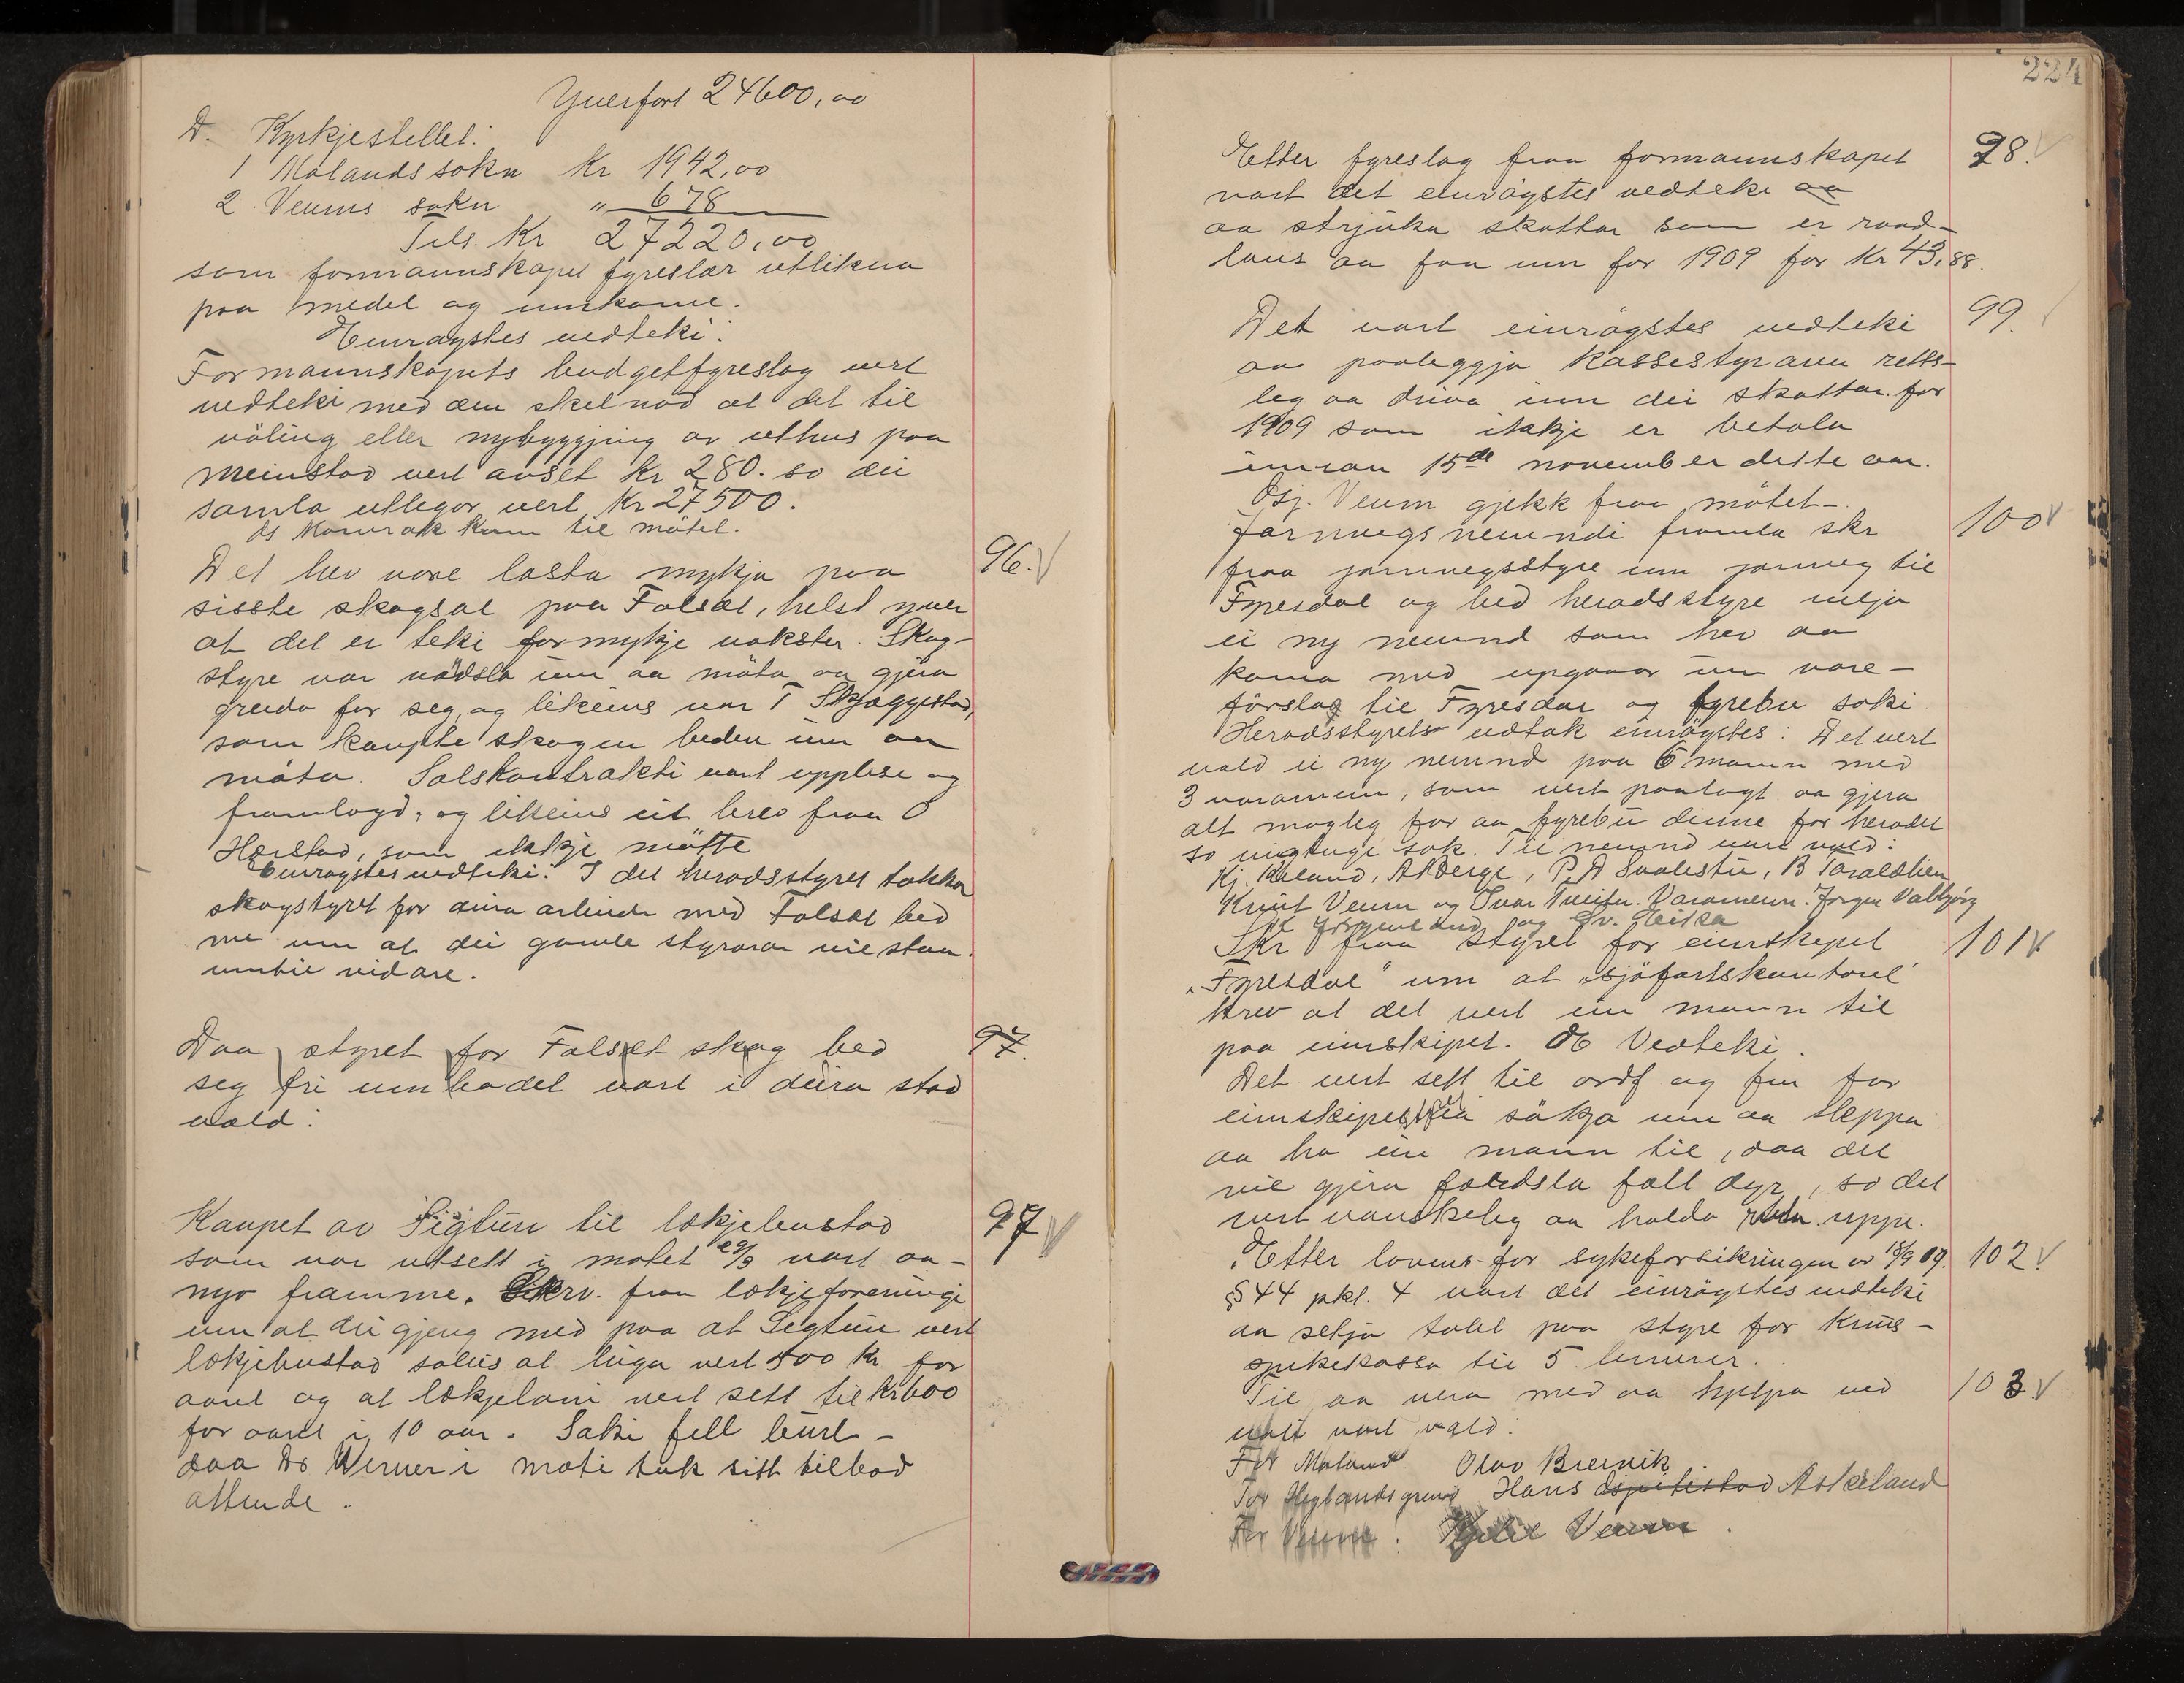 Yverført 24600,00
D. Kyrkjestellet:
1 Molands sokn Kr 1942,00
2. Veums sokn " 678
Tils. Kr 27220,00
som formannskapet fyreslær utlikna
paa medel og innkome.
Einrøystes vedteki:
Formannskapets budgetfyreslag vert
vedteki med den skelnad at det til
vøling eller nybyggjing av uthus paa
Meinstad vert avset kr 280. so dei
samla utlegor vert Kr 27500.
Det hev vore lasta mykje paa
96.
sisste skogsal paa Folsæ, helst yver
at det er teki for mykje vokster. Skog-
styre var nødsla um aa møta og gjera
greida for seg, og likeins var T Skjeggestad,
som kaupte skogen beden um aa
møta. Salskontrakti vart upplese og
framlogd, og likeins eit brev fraa O
Haustad, som ikkje møtte
Einrøystes vedteki: I det heradsstyret takka
skogstyret for deira arbeide med Folsæ bed
me um at dei gamle styrarar vil staa
inntil vidare.
Daa styret for Folsæ skog bed
97.
seg fri umbodet vart i deira stad
vald:
Kaupet av Sigtun til lækjebustad
97
som var utsett i møtet 29/3 vart aa-
nyo framme. Skriv. fraa lækjeforeningi
um at dei gjeng med paa at Sigtun vert
lækjebustad soleis at leiga vert 500 kr for
aaret og at lækjeløni vert sett til kr 600
for aaret i 10 aar. Saki fell burt -
daa Dr Werner i møti tok sitt tilbod
attende.
224
Etter fyreslag fraa formannskapet
98.
vart det einrøystes vedteke aa
aa strjuka skattar som er raad-
laus aa faa inn for 1909 for Kr 43,88.
Det vart einrøystes vedteki
99.
aa paaleggja kassestyraren retts-
leg aa driva inn dei skattar for
1909 som ikkje er betala
innan 15de november dette aar.
Osj. Veum gjekk fraa møtet-
Jarnvegsnemndi framla skr
100
fraa jarnvegsstyre um jarnveg til
Fyresdal og bed heradsstyre velja
ei ny nemnd som hev aa
koma med upgaavor um vare-
førslag til Fyresdal og fyrebu saki
Heradsstyrets vedtak einrøystes: Det vert
vald ei ny nemnd paa 6 mann med
3 varamenn, som vert paalagt aa gjera
alt mogleg for aa fyrebu denne for heradet
so vigtuge sak. Til nemnd vart vald:
Kj. Kleland, A Berge, P. A Svalestu, B Taraldlien
Knut Veum og Ivar Tveiten. Varamenn. Jørgen Valbjørg
og Sv. Heiska
Skr fraa styret for eimskipet
101
"Fyresdal" um at sjøfartskontoret
krev at det vert ein mann til
paa eimskipet. Vedteki.
Det vert sett til ordf og fm for
eimskipet søkja um aa sleppa
aa ha ein mann til, daa det
vil gjera færdsla fælt dyr, so det
vert vanskeleg aa halda uppe.
Etter lovens for sykeforsikringen av 18/9 09.
102
§ 44 pkt. 4 vart det einrøystes vedteki
aa setja talet paa styre for Kreis-
sjukekassa til 5 lemmer.
Til aa vera med aa hjelpa ved
103
valet vart vald:
For Moland Olav Breivik
For Høglandsgrend Hans Askeland
For Veum: Kjetil Veum.